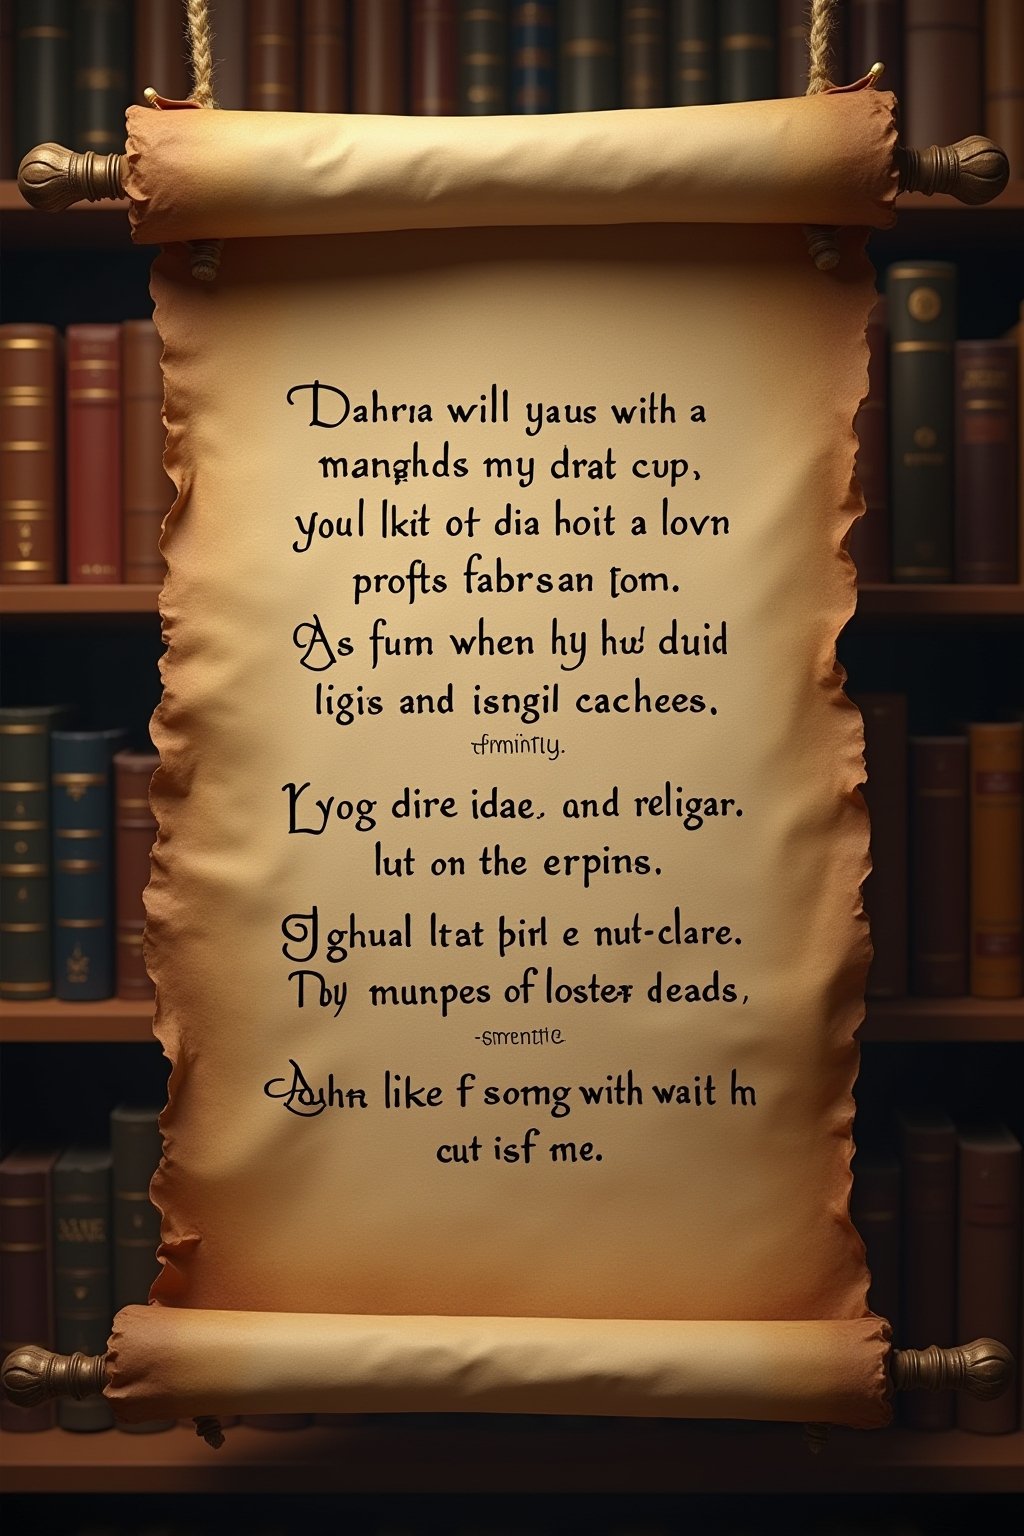 Dahria will yaus with a
manghds my drat cup,
youl lkit ot dia hoit a lovn
profts fabrsan tom.
As fum when hy hud duid
ligis and isngil cachees.
Lyog dire idae. and religar.
lut on the erpins.
Jghual ltat pirl e nut-clare.
Thy munpes of loster deads,
-smenthe
like f somg with wait m
cut isf me.